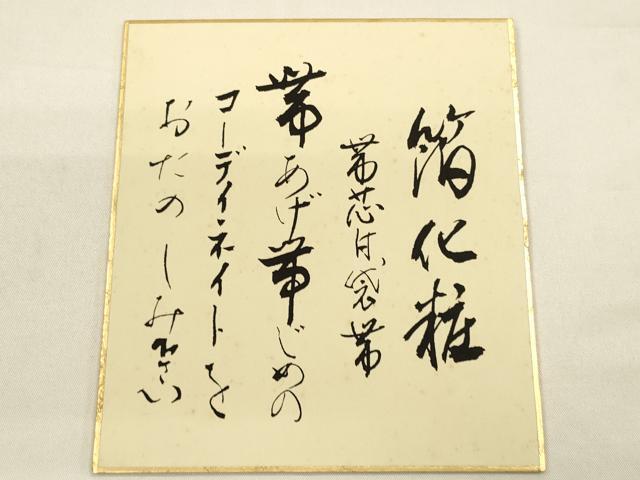 箔化粧
帯芯付袋帯
帯あげ帯じめの
コーディネイトを
おたのしみ下さい